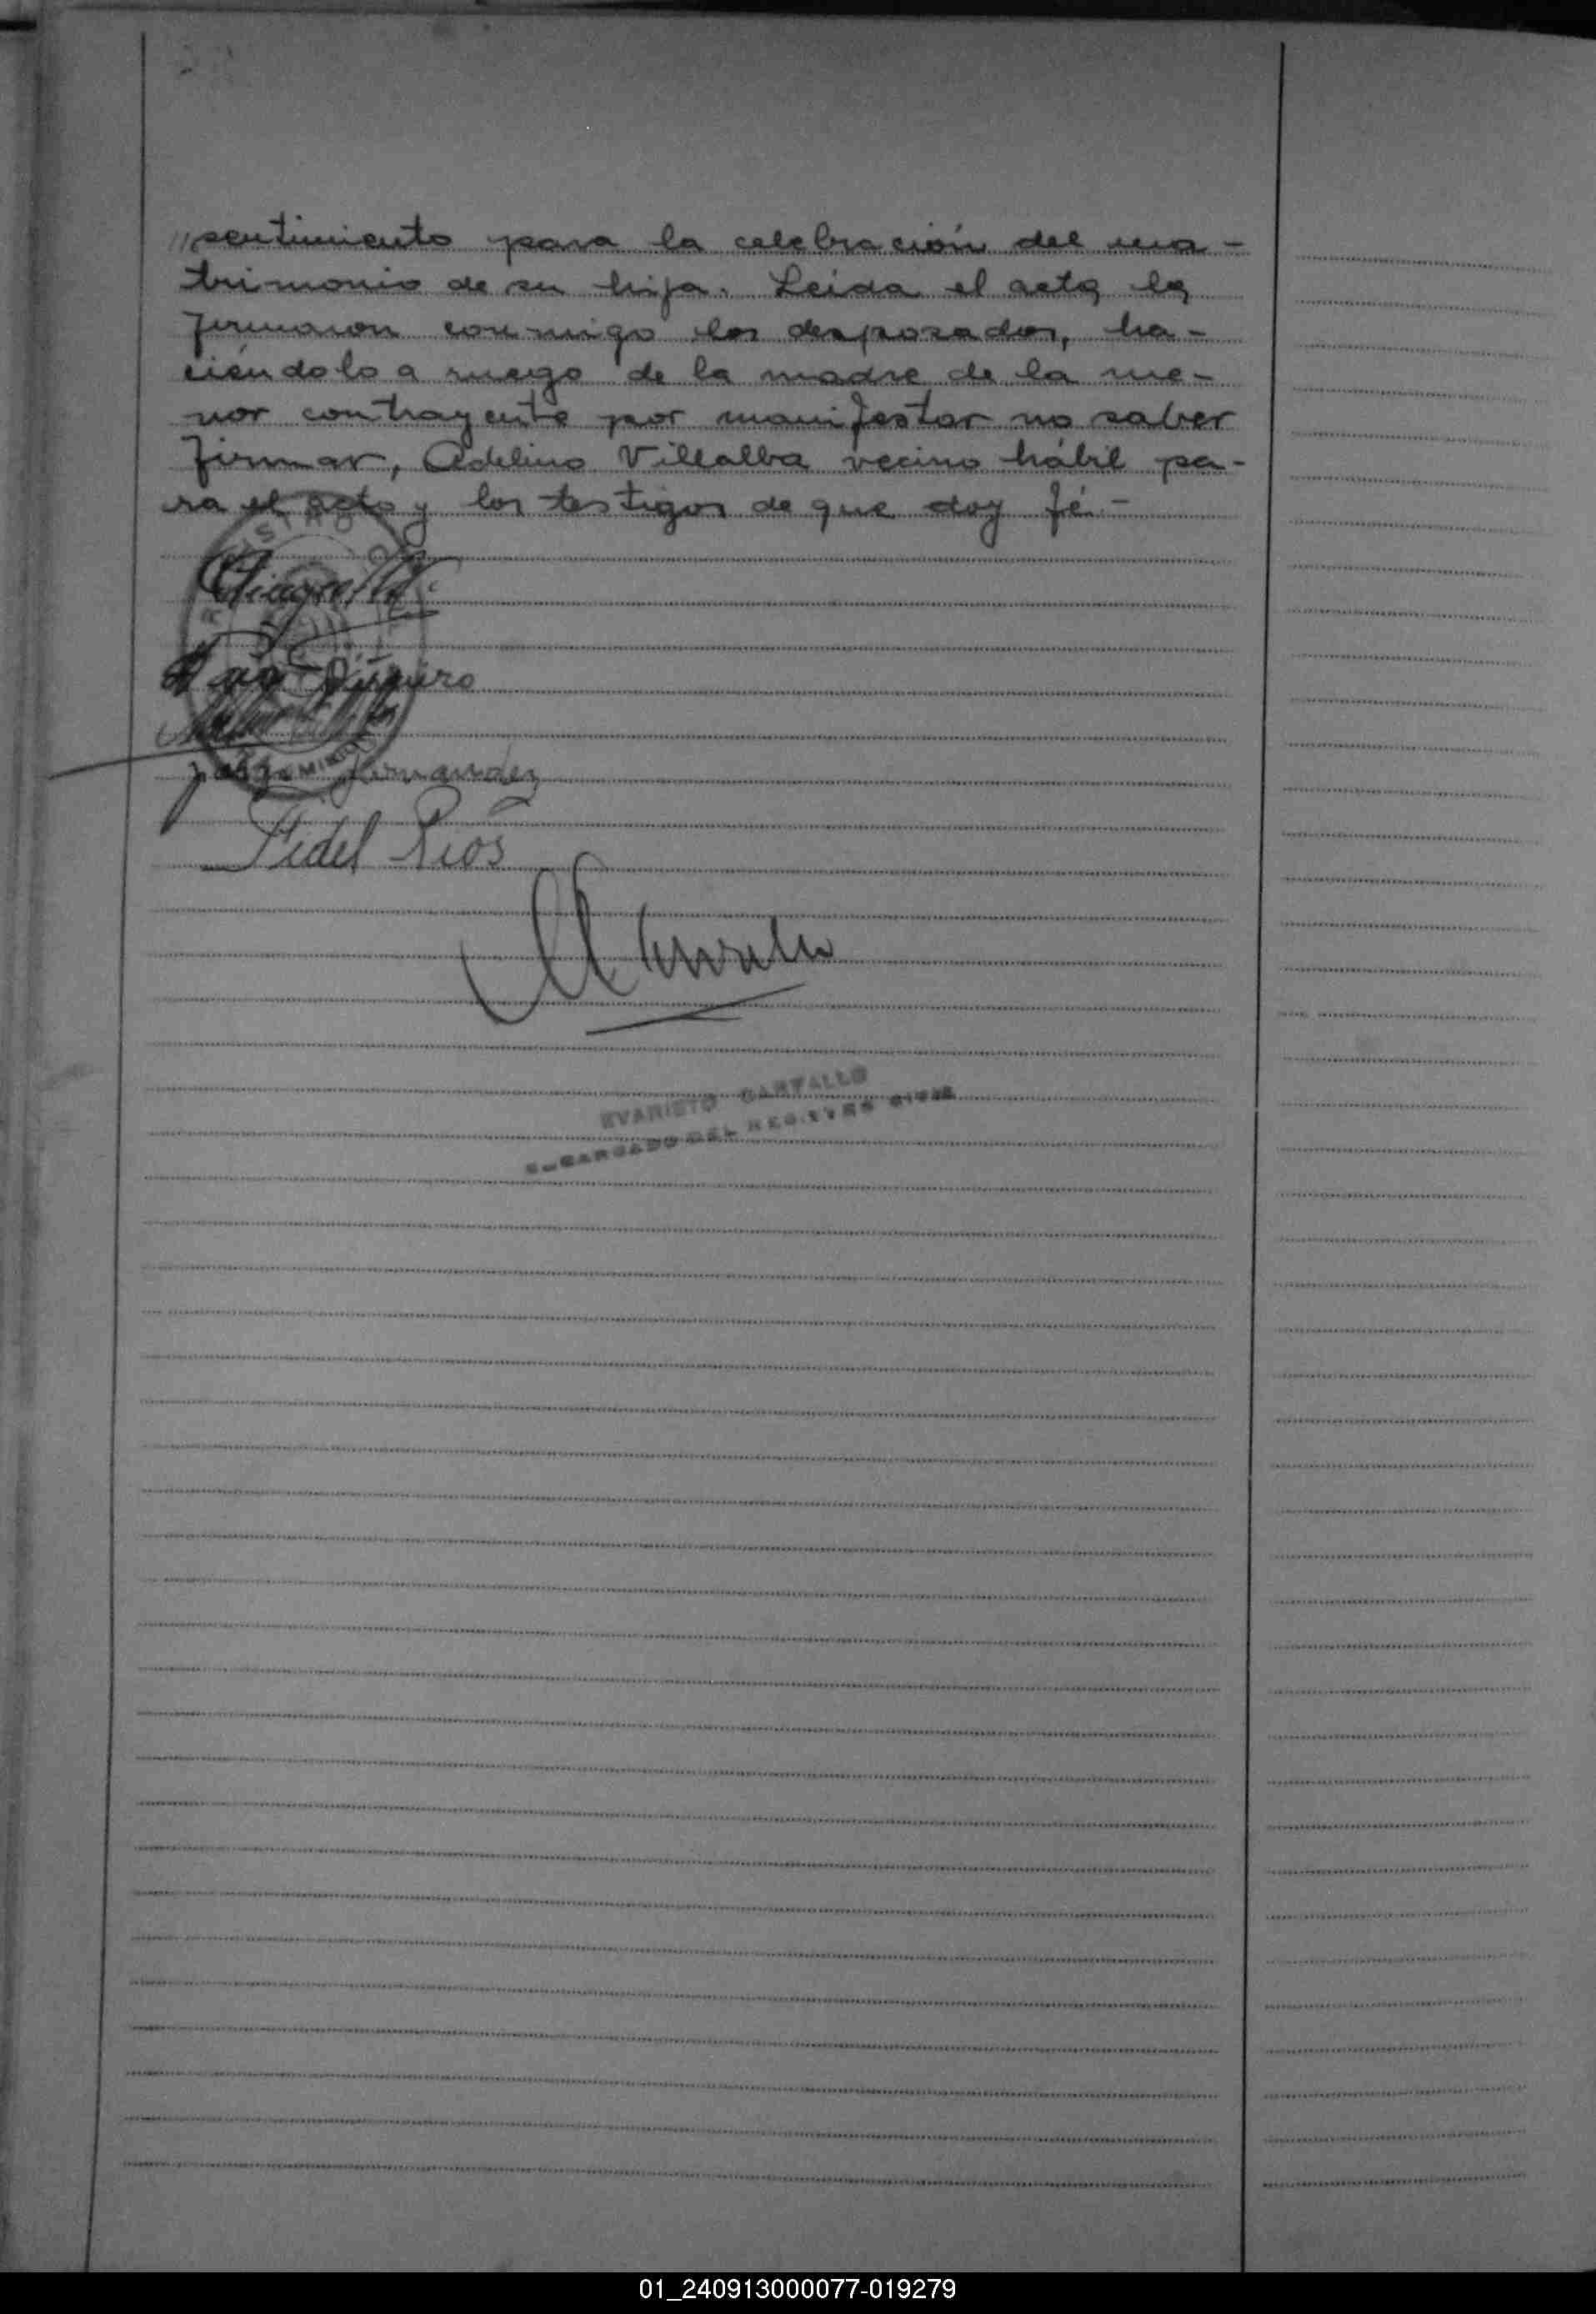 "sentimiento para la celebración del ma-
trimonio de su hija. Leida el acta la
firmaron conmigo los desposados, ha-
ciéndolo a ruego de la madre de la me-
nor contrayente por manifestar no saber
firmar, Adelino Villalba vecino hábil pa-
ra el acto y los testigos de que doy fé.-
Fernandez
Fidel Rios
EVARISTO CARTALLO
ENCARGADO DEL REGISTRO CIVIL
01_240913000077-019279